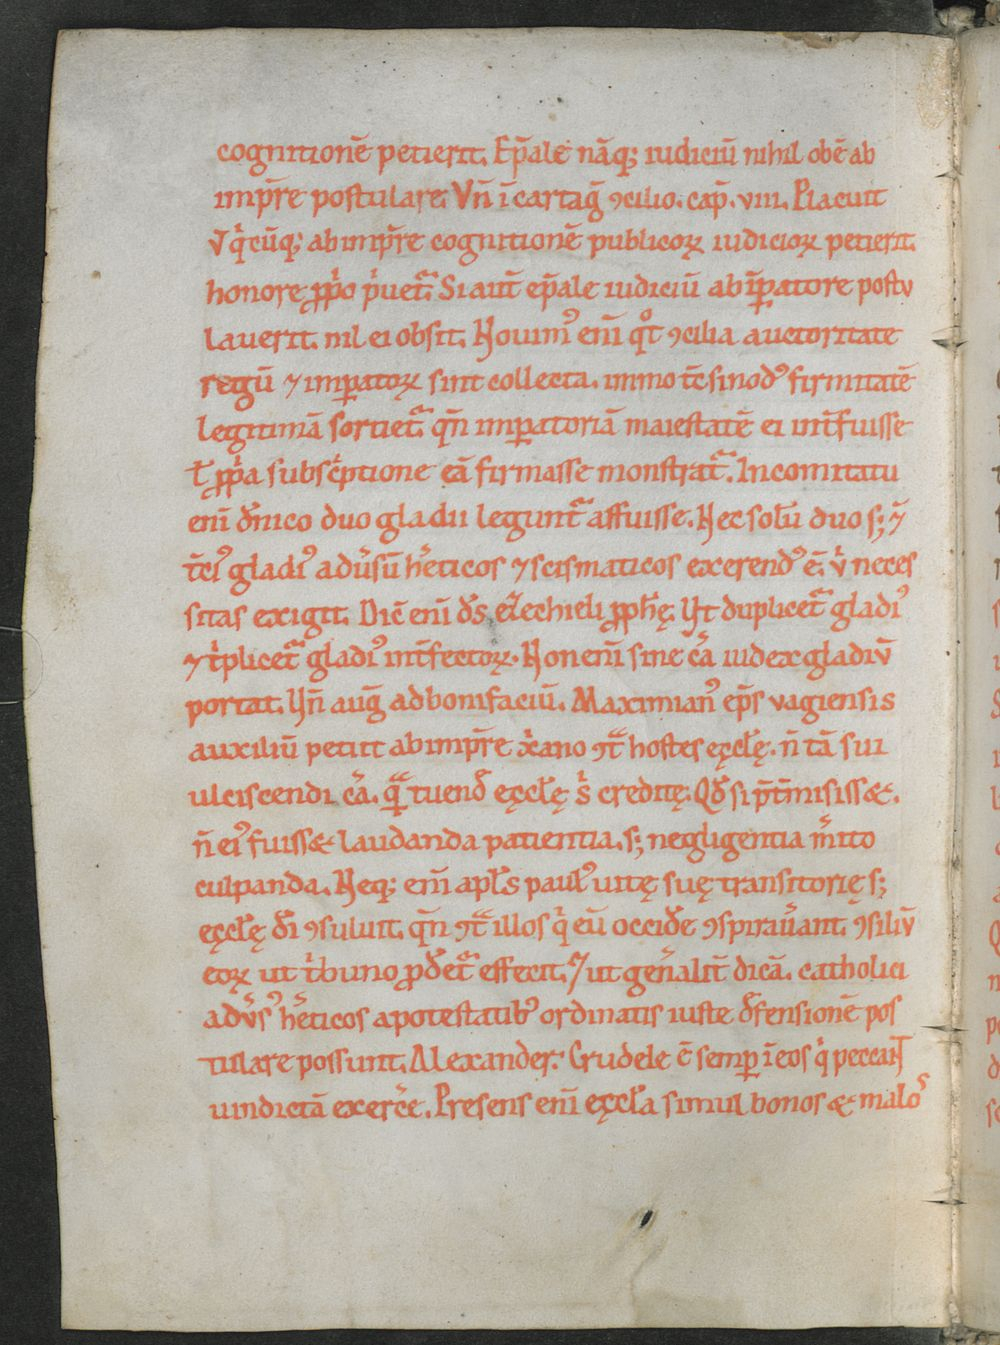 cognitionē petierit. Ep̄ale nāq; iudiciū nihil obē ab
imp̄re postulare. Vn̄ ī cartaḡ ꝯcilio. cap̄. viii. Placuit
vͭ qͥcūq; ab imp̄re cognitionē publicoꝝ iudicioꝝ petierit.
honore ꝓpͥo pͥuet᷑. Si aut̄ ep̄ale iudiciū ab īꝑatore postu
laverit. nil ei obsit. Nouimꝰ eni̅ qͦt ꝯcilia auctoritate
regū ⁊ imꝑatoꝝ sint collecta. immo tc̄ sinodꝰ firmitatē
legitimā sortiet᷑. qn̄ imꝑatoriā maiestatē ei int̄fuisse
ł ꝓpͥa subscͥptione eā firmasse monstrat᷑. In comitatu
eni̅ dn̄ico duo gladii legunt᷑ affuisse. Nec solū duo s; ⁊̄
t̄ciꝰ gladiꝰ adūsū hēticos ⁊ scismaticos exerendꝰ ē. vͥ neces
sitas exigit. Dic̄ eni̅ dn̄s eẓechieli ꝓph̄ę. Ut duplicet᷑ gladiꝰ
⁊ tͥplicet᷑ gladiꝰ int̄fectoꝝ. Non eni̅ sine cā iudex gladiū
portat. Un̄ auḡ ad bonifaciū. Maximianꝰ ep̄s vagiensis
auxiliū petiit ab imp̄re xͥano ꝯtᷓ hostes ęcclę̄. n̄ tā sui
ulciscendi cā. qᷓ tuend̄ ęcclę̄ sͥ creditę. Qd̄ si p̄t̄misiss&.
n̄ eiꝰ fuiss& laudanda patientia. s; negligentia m̄ito
culpanda. Neq; eni̅ apl̄s paulꝰ uitę suę transitorię s;
ęcclę̄ dī ꝯsuluit. qn̄ ꝯtᷓ illos qͥ eū occid̄e ꝯspirau̅ant. ꝯsiliū
eoꝝ ut tͥbuno ꝓd̄et᷑ effecit. ⁊ ut gen̄alit̄ dicā. catholici
advs̄ꝰ hēticos a potestatibꝰ ordinatis iuste d̄fensionē pos
tulare possunt. Alexander. Crudele ē semꝑ ī eos qͥ peccant
uindictā exerc̄e. Presens eni̅ ęccl̄a simul bonos & malos